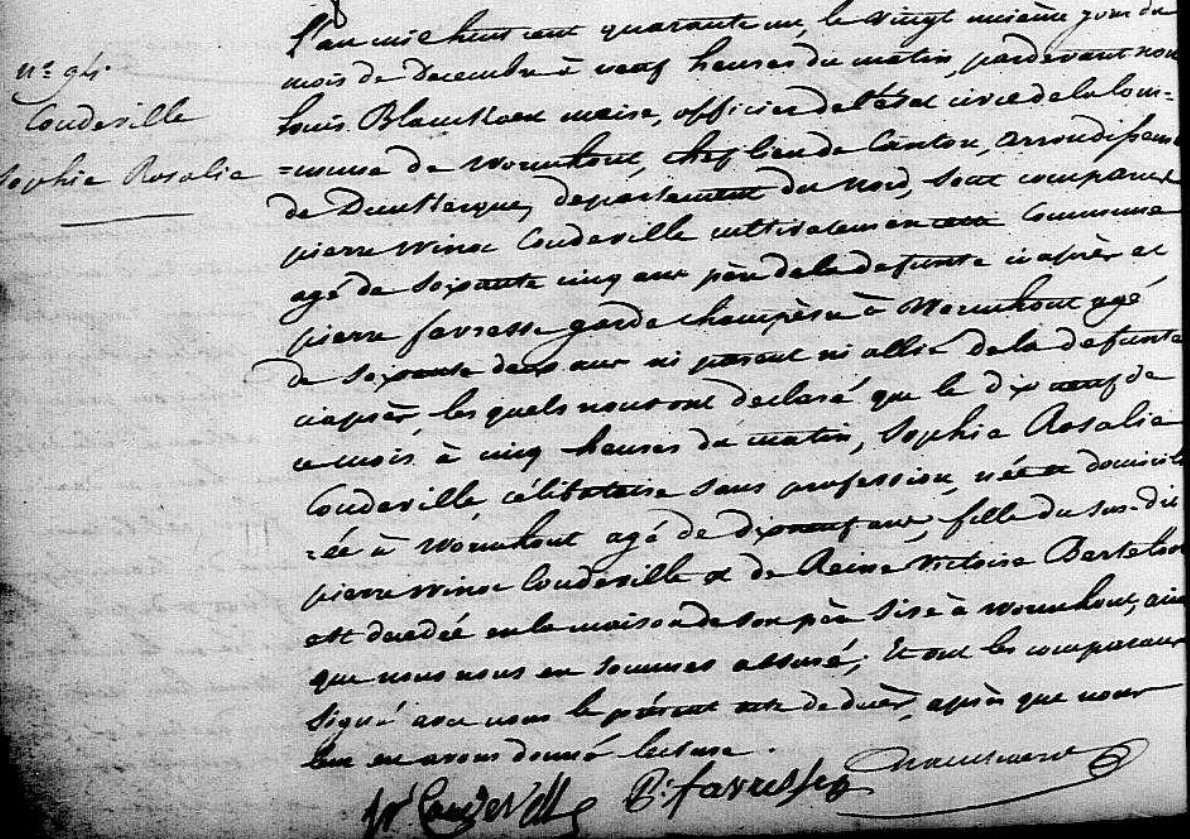 nº 94.
Coudeville
Sophie Rosalie
L'an mil huit cent quarante un, le vingt unième jour du
mois de Decembre à neuf heures du matin, pardevant nous
Louis Blanckaert maire, officier de l'état civil de la Com-
=mune de Wormhout, chef lieu de Canton, arrondissement
de Dunkerque, departement du Nord, sont comparus
pierre Winoc Coudeville cultivateur en cette Commune
agé de soixante cinq ans père de la defunte ciaprès et
pierre favresse garde champètre à Wormhout agé
de soixante deux ans ni parent ni allié de la defunte
ciaprès, les quels nous ont declaré que le dix neuf de
ce mois à cinq heures du matin, Sophie Rosalie
Coudeville, célibataire sans profession, née et domicili
=ée à Wormhout agé de dix neuf ans, fille du sus-dit
pierre Winoc Coudeville et de Reine Victoire
est decedée en la maison de son père sise à Wormhout, ainsi
que nous nous en sommes assuré; Et ont les comparans
signé avec nous le présent acte de décès, après que nous
leur en avons donné lecture.
Coudeville P: favresse